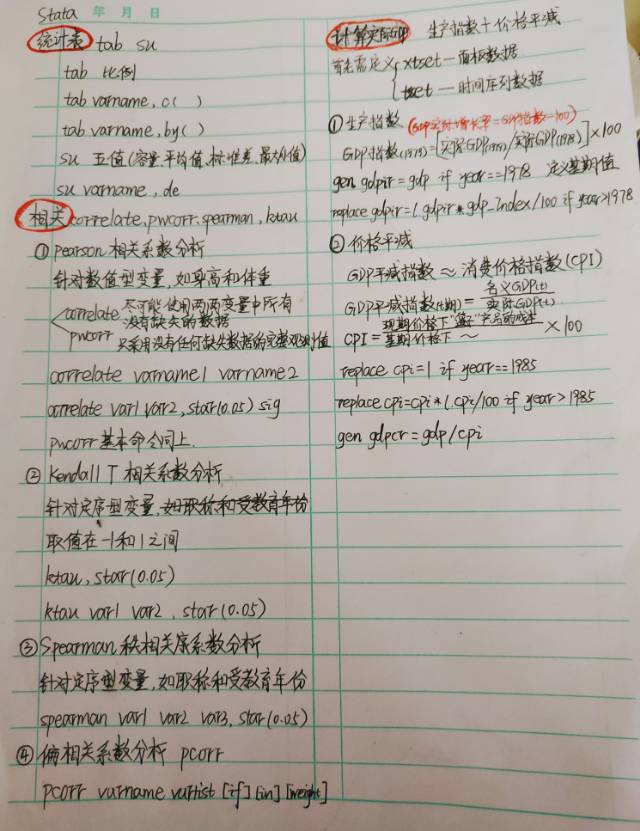 Stata 年 月 日
统计表 tab su
tab 比例
tab varname, c( )
tab varname, by( )
su 五值(容量.平均值.标准差.最大小值)
su varname, de
相关 correlate, pwcorr. spearman, ktau
① pearson 相关系数分析
针对数值型变量, 如身高和体重
correlate 尽可能使用两两变量中所有没有缺失的数据
pwcorr 只采用没有任何缺失数据的完整观测值
correlate varname1 varname2
correlate var1 var2, star(0.05) sig
pwcorr 基本命令同上.
② Kendall T 相关系数分析
针对定序型变量, 如职称和受教育年份
取值在-1和1之间
ktau, star(0.05)
ktau var1 var2, star(0.05)
③ Spearman 秩相关系数分析
针对定序型变量, 如职称和受教育年份
spearman var1 var2 var3, star(0.05)
④ 偏相关系数分析 pcorr
pcorr varname varlist [if] [in] [weight]
计算实际GDP 生产指数+价格平减
首先需定义 xtset — 面板数据
tset — 时间序列数据
① 生产指数 (GDP实际增长率=GDP指数-100)
GDP指数(1979)=[实际GDP(1979)/实际GDP(1978)]×100
gen gdpir = gdp if year==1978 定义基期值
replace gdpir=l.gdpir*gdp-Index/100 if year>1978
② 价格平减
GDP平减指数 ≈ 消费价格指数(CPI)
GDP平减指数(t期)= 名义GDP(t) / 实际GDP(t)
CPI = 现期价格下"篮子"产品的成本 / 基期价格下 ~ ×100
replace cpi=1 if year==1985
replace cpi=cpi*l.cpi/100 if year>1985
gen gdpcr=gdp/cpi